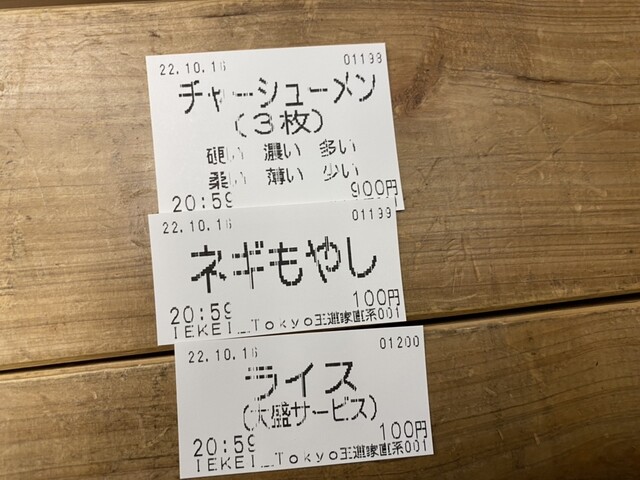 22.10.16 01198
チャーシューメン
(3枚)
硬い 濃い 多い
柔い 薄い 少い
20:59 900円
22.10.16 01199
ネギもやし
20:59 100円
IEKEI Tokyo王道家直系001
22.10.16 01200
ライス
(大盛サービス)
20:59 100円
IEKEI Tokyo王道家直系001